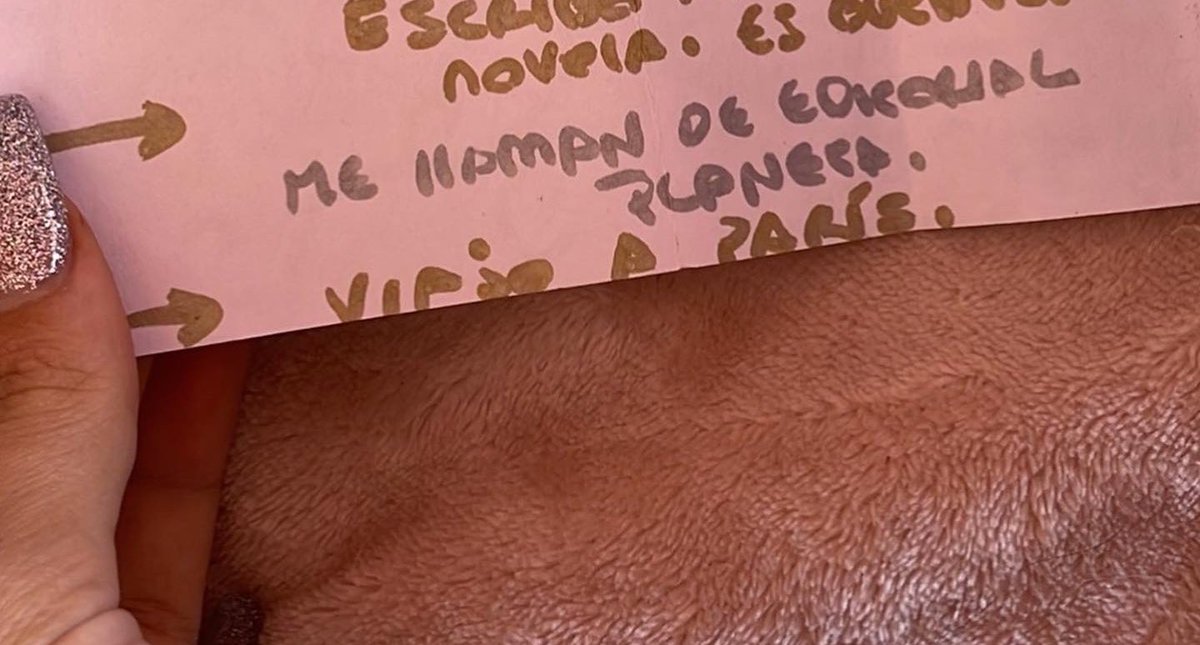 novela. ES
ME llAMAN DE EDITORIAL
PLANETA.
VIAjO A PARÍS.